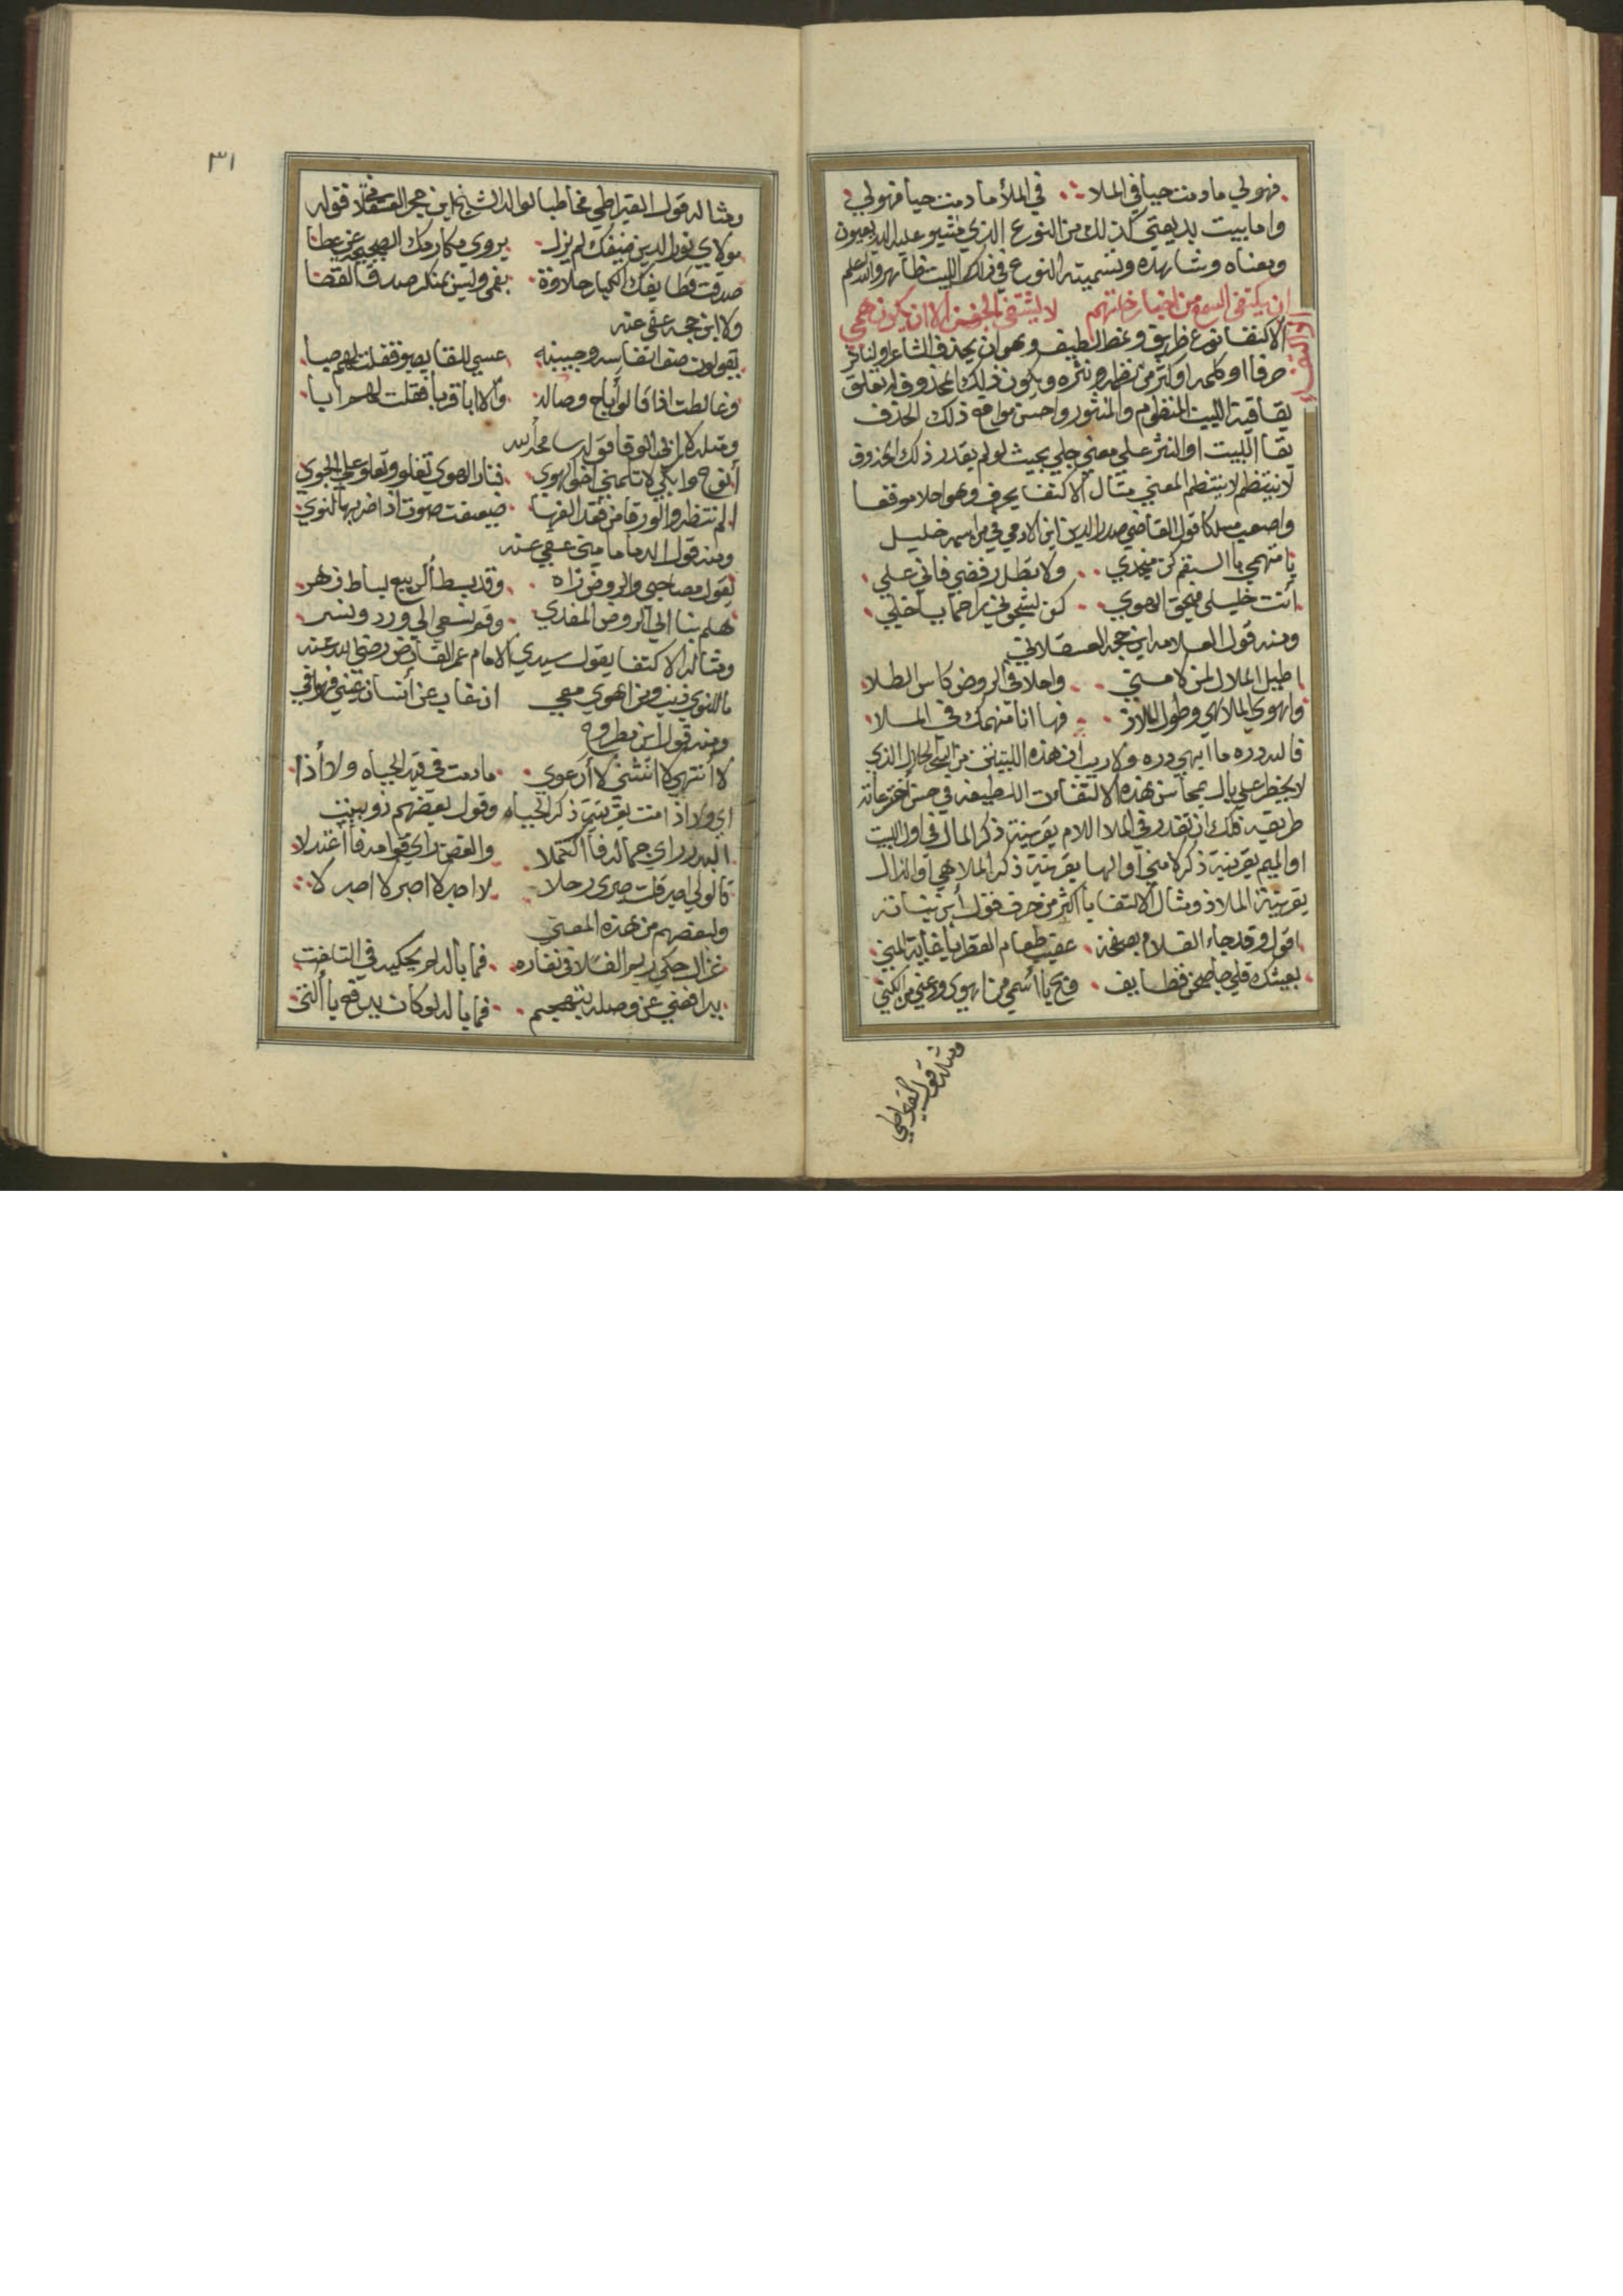 فهو لي ما دمت حيا في الملا في الملأ ما دمت حيا فهو لي
واما بيت بديعتي كذلك من النوع الذي مشيو عليه البديعيون
ومعناه وشاهده وتسميته النوع في ذلك البيت ظاهر والله اعلم
ان يكتفي السمع من اخبار خلتهم لا يشتفي الجفن الا ان يكون همي
الاكتفاء
الاكتفا نوع ظريف ونمط لطيف وهو ان يحذف الشاعر او الناثر
حرفا او كلمه او اكثر من نظمه ونثره ويكون ذلك المحذوف له تعلق
بقافية البيت المنظوم والمنثور واحسن مواقع ذلك الحذف
بقا البيت او النثر علي معني جلي بحيث لو لم يقدر ذلك المحذوف
لا ينتظم المعني مثال الاكتفا بحرف وهو احلا موقعا
واصعب مسلكا قول القاضي صدر الدين ابن الادمي في من اسمه خليل
يا متهمي بالسقم كن منجدي ولا تطل رفضي فاني علي
أنت خليلي فبحق الهوي كن لشجوني راحما يا خلي
ومنه قول العلامه ابن حجر العسقلاني
اطيل الملال لمن لامني واحلا في الروض كاس الطلا
واهوي الملاهي وطول الملاذ فها انا منهمك في الملا
فالله دره ما ابهي دره ولا ريب ان هذه البيتين من السحر الحلال الذي
لا يخطر علي بال محاسن هذه الالتفات اللطيفه في حسن اخترعاته
طريقه فلك ان تقدر في الملا اللام بقرينة ذكر الملال في اول البيت
او الميم بقرينة ذكر لامني او الها بقرينة ذكر الملاهي او الذال
بقرينة الملاذ ومثال الاكتفا باكثر من حرف فقول أبن نباتة
اقول وقد جاء الغلام بصحفة عقيب طعام الفطر يا غاية المني
بعيشك قل لي جا صحن قطايف وبح يا اسمي من اهوي ودعني من الكني
ومثاله قول القيراطي
٣١
ومثاله قول القيراطي مخاطبا لوالد الشيخ ابن حجر العسقلاني فقوله
مولاي نور الدين ضيفك لم يزل يروي مكارمك الصحيحه عن عطا
صدقت قطايفك الكبار حلاوة بفمي وليس بمنكر صدق القطا
ولابن حجه عفي عنه
يقولون صف انفاسه وجبينه عسي للقا يصبو فقلت لهم صبا
وغالطت اذا قالو أباح وصاله والا ابا قربا فقلت لهم ابا
ومثله لابن ابي الوفا فقوله سامحه الله
أنوح وابكي لا تلمني اخا الهوي فنار الهوي تغلو وتعلو علي الجوي
الم تنتظرو الورقا من فقد الفها ضعفت صوت اذ اضر بها النوي
ومنه قول الدماميني عفي عنه
يقول مصاحبي والروض زاه وقد بسط الربيع بساط زهر
هلم بنا الي الروض المفدي وقم نسعي الي ورد ونسر
ومثاله الاكتفا بقول سيدي الامام عمر الفارض رضي الله عنه
ما للنوي ذنب ومن اهوي معي ان غاب عن انسان عيني فهو في
ومنه قول ابن مطروح
لا أنتهي لا انثني لا أرعوي ما دمت في قيد الحياه ولا أذا
اي ولا اذا مت بقرينة ذكر الحياه وقول بعضهم ذو بيتين
البدر راي جماله فاكتملا والغصن راي قوامه فاعتدلا
قالو لي اصبر قلت صبري رحلا لا اصبر لا اصبر لا اصبر لا
ولبعضهم من هذه المعني
غزال حكي ريم الفلا في نفاره فما باله لم يحكيه في التلفت
يدافعني عن وصله بتهجم فما باله لو كان يدفع يا ألتي